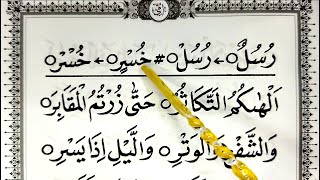 رُسُلٌ ○ ← رُسُلْ ○ # خُسْرٍ ○ ← خُسْرْ ○
اَلْهٰىكُمُ التَّكَاثُرُ ○ حَتّٰى زُرْتُمُ الْمَقَابِرَ ○
وَالشَّفْعِ وَالْوَتْرِ ○ وَالَّيْلِ اِذَا يَسْرِ ○